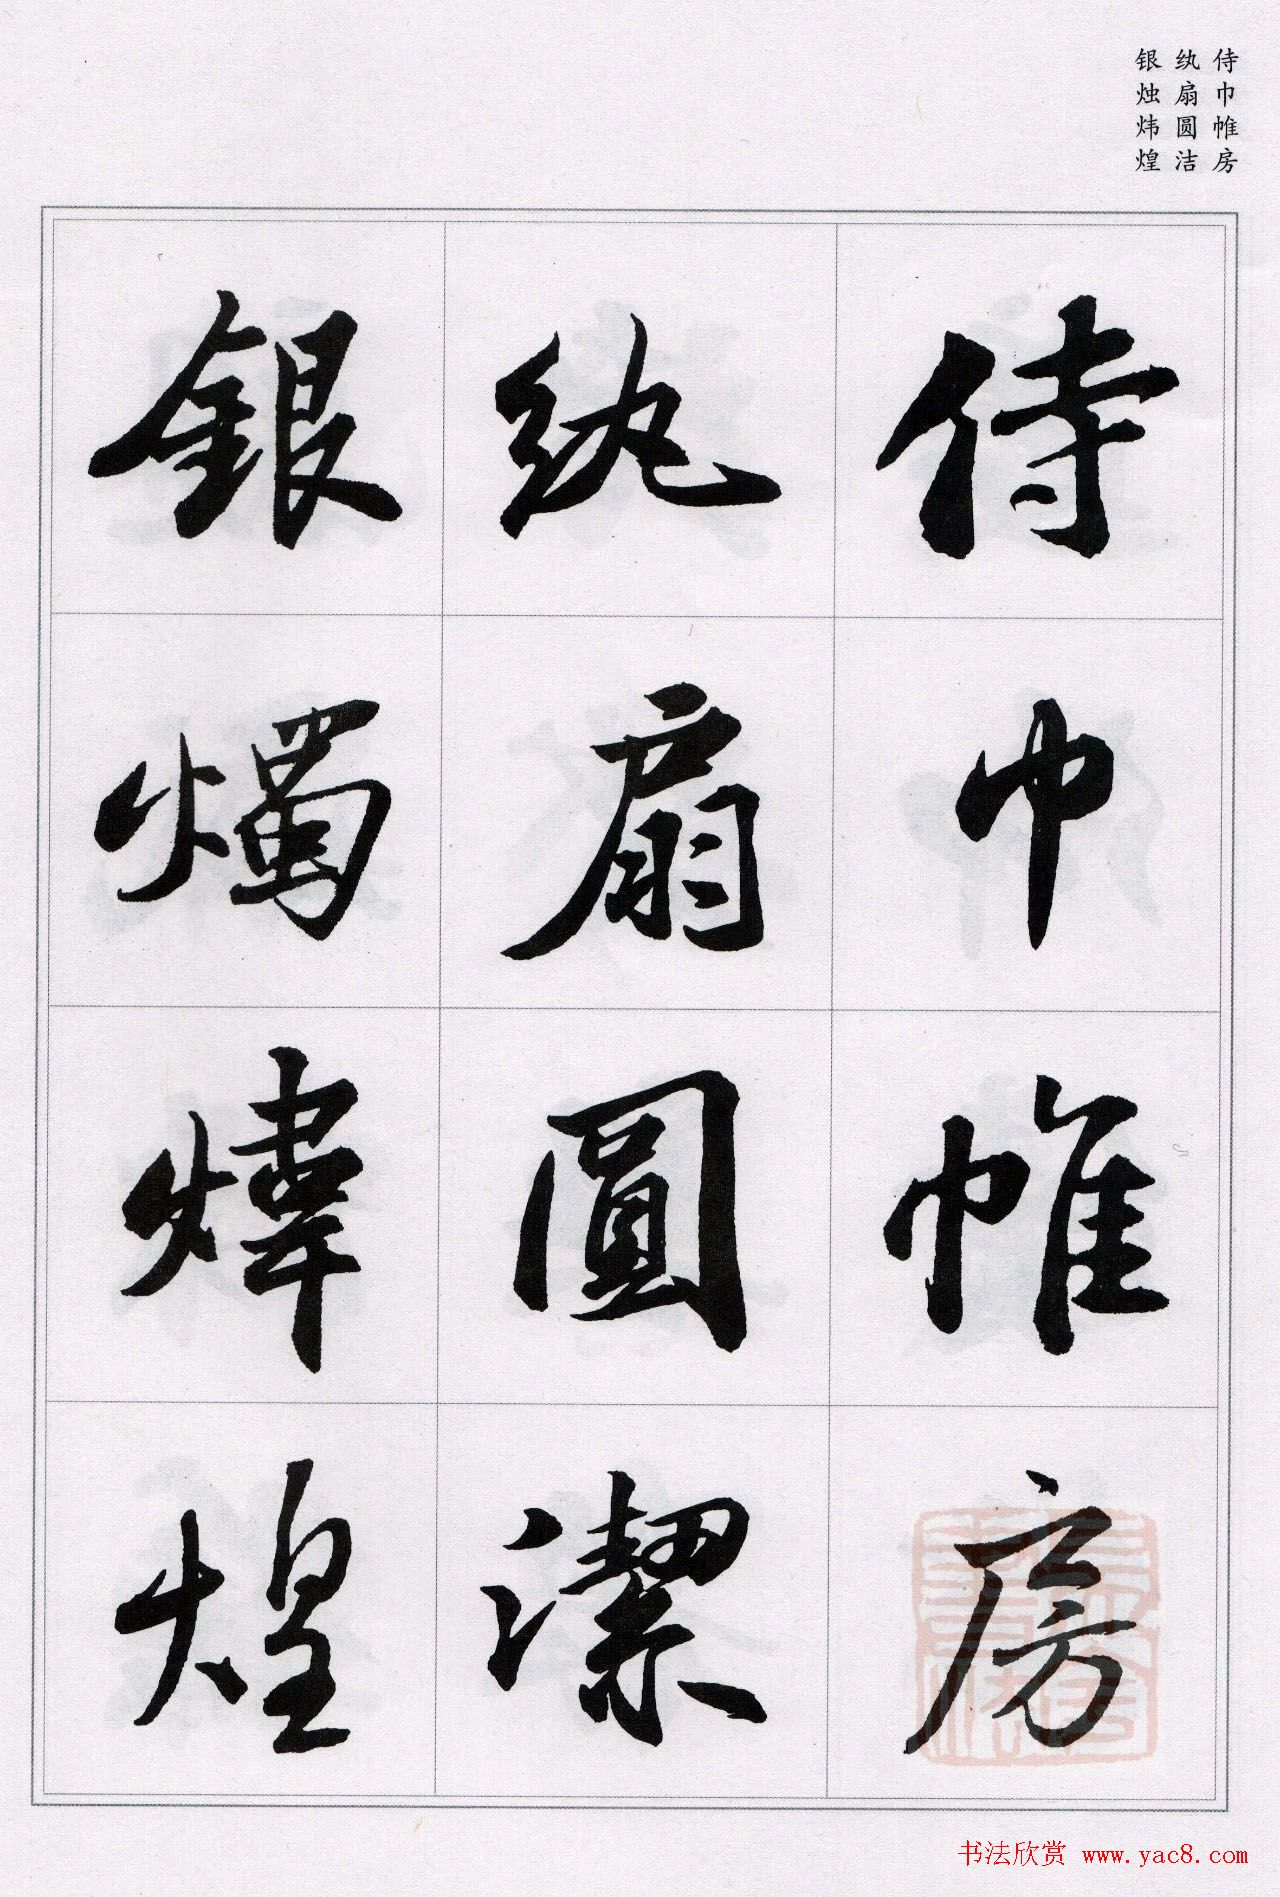 侍巾帷房
纨扇圆洁
银烛炜煌
侍巾帷房
紈扇圓潔
銀燭煒煌
书法欣赏 www.yac8.com